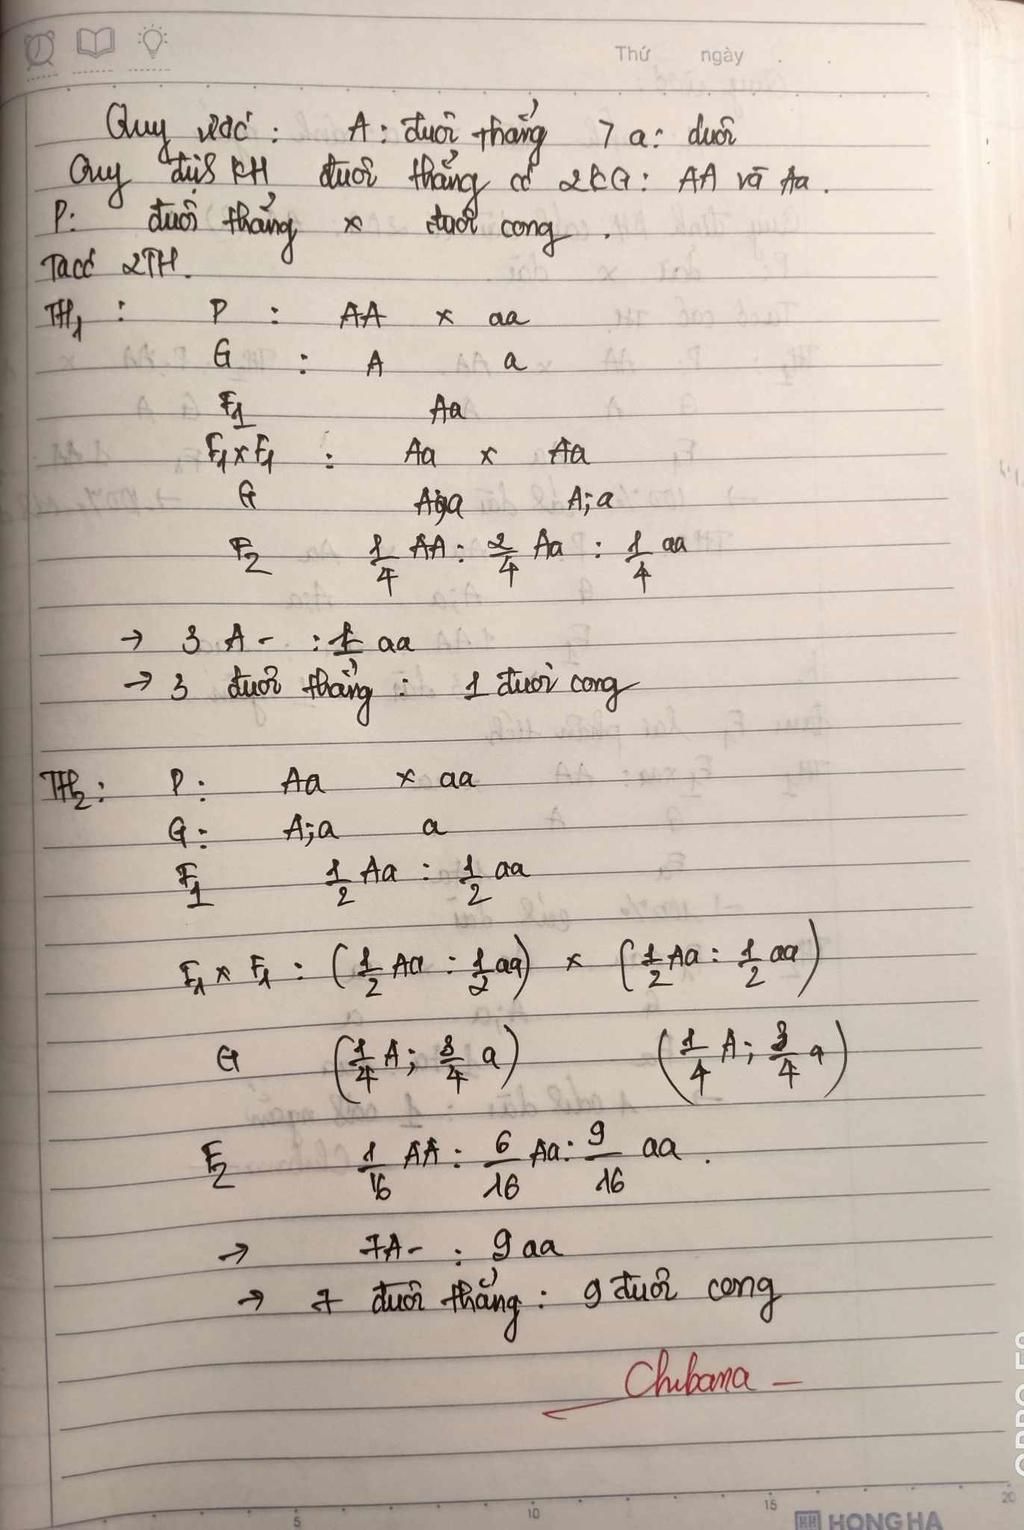 Thứ ngày
Quy ước : A : đuôi thẳng > a : đuôi
Quy định KH đuôi thẳng có 2KG : AA và Aa .
P : đuôi thẳng x đuôi cong .
Ta có 2TH .
TH1 : P : AA x aa
G : A a
F1 Aa
F1 x F1 : Aa x Aa
G A;a A;a
F2 1/4 AA : 2/4 Aa : 1/4 aa
→ 3 A- : 1 aa
→ 3 đuôi thẳng : 1 đuôi cong
TH2 : P : Aa x aa
G : A;a a
F1 1/2 Aa : 1/2 aa
F1 x F1 : (1/2 Aa : 1/2 aa) x (1/2 Aa : 1/2 aa)
G (1/4 A ; 3/4 a) (1/4 A ; 3/4 a)
F2 1/16 AA : 6/16 Aa : 9/16 aa .
→ 7A- : 9 aa
→ 7 đuôi thẳng : 9 đuôi cong
Chibana
5 10 15 20
HONG HA